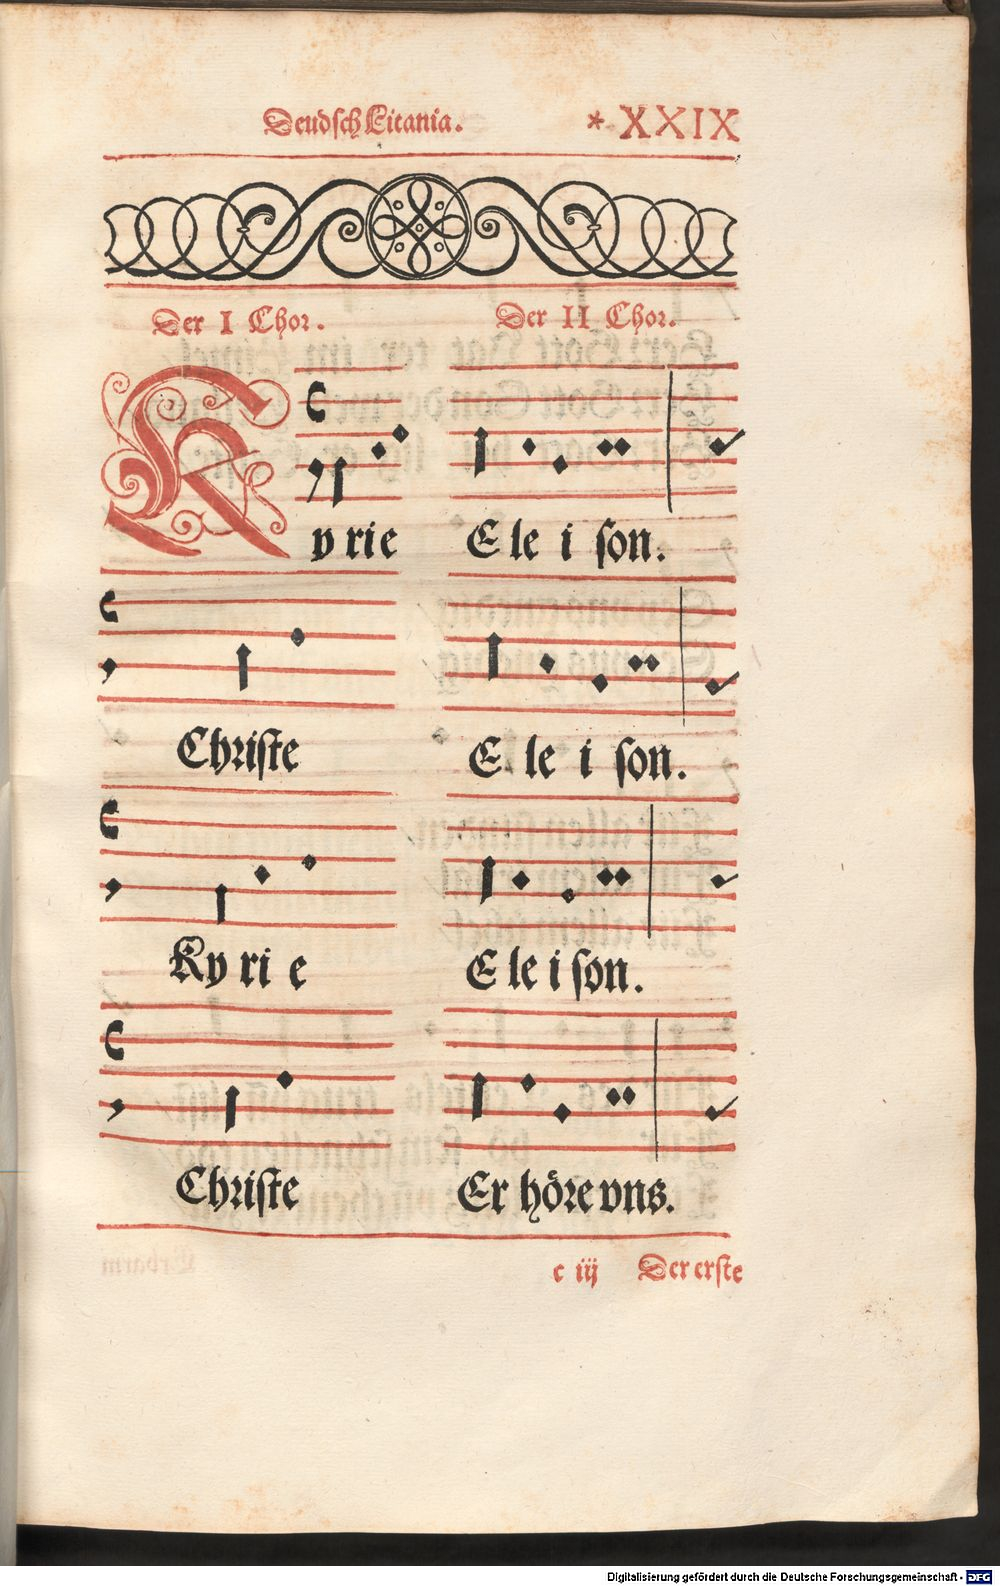 Deudsch Litania. * XXIX
Der I Chor. Der II Chor.
Kyrie Eleison.
Christe Eleison.
Kyrie Eleison.
Christe Erhöre vns.
c iij Der erste
Digitalisierung gefördert durch die Deutsche Forschungsgemeinschaft - DFG